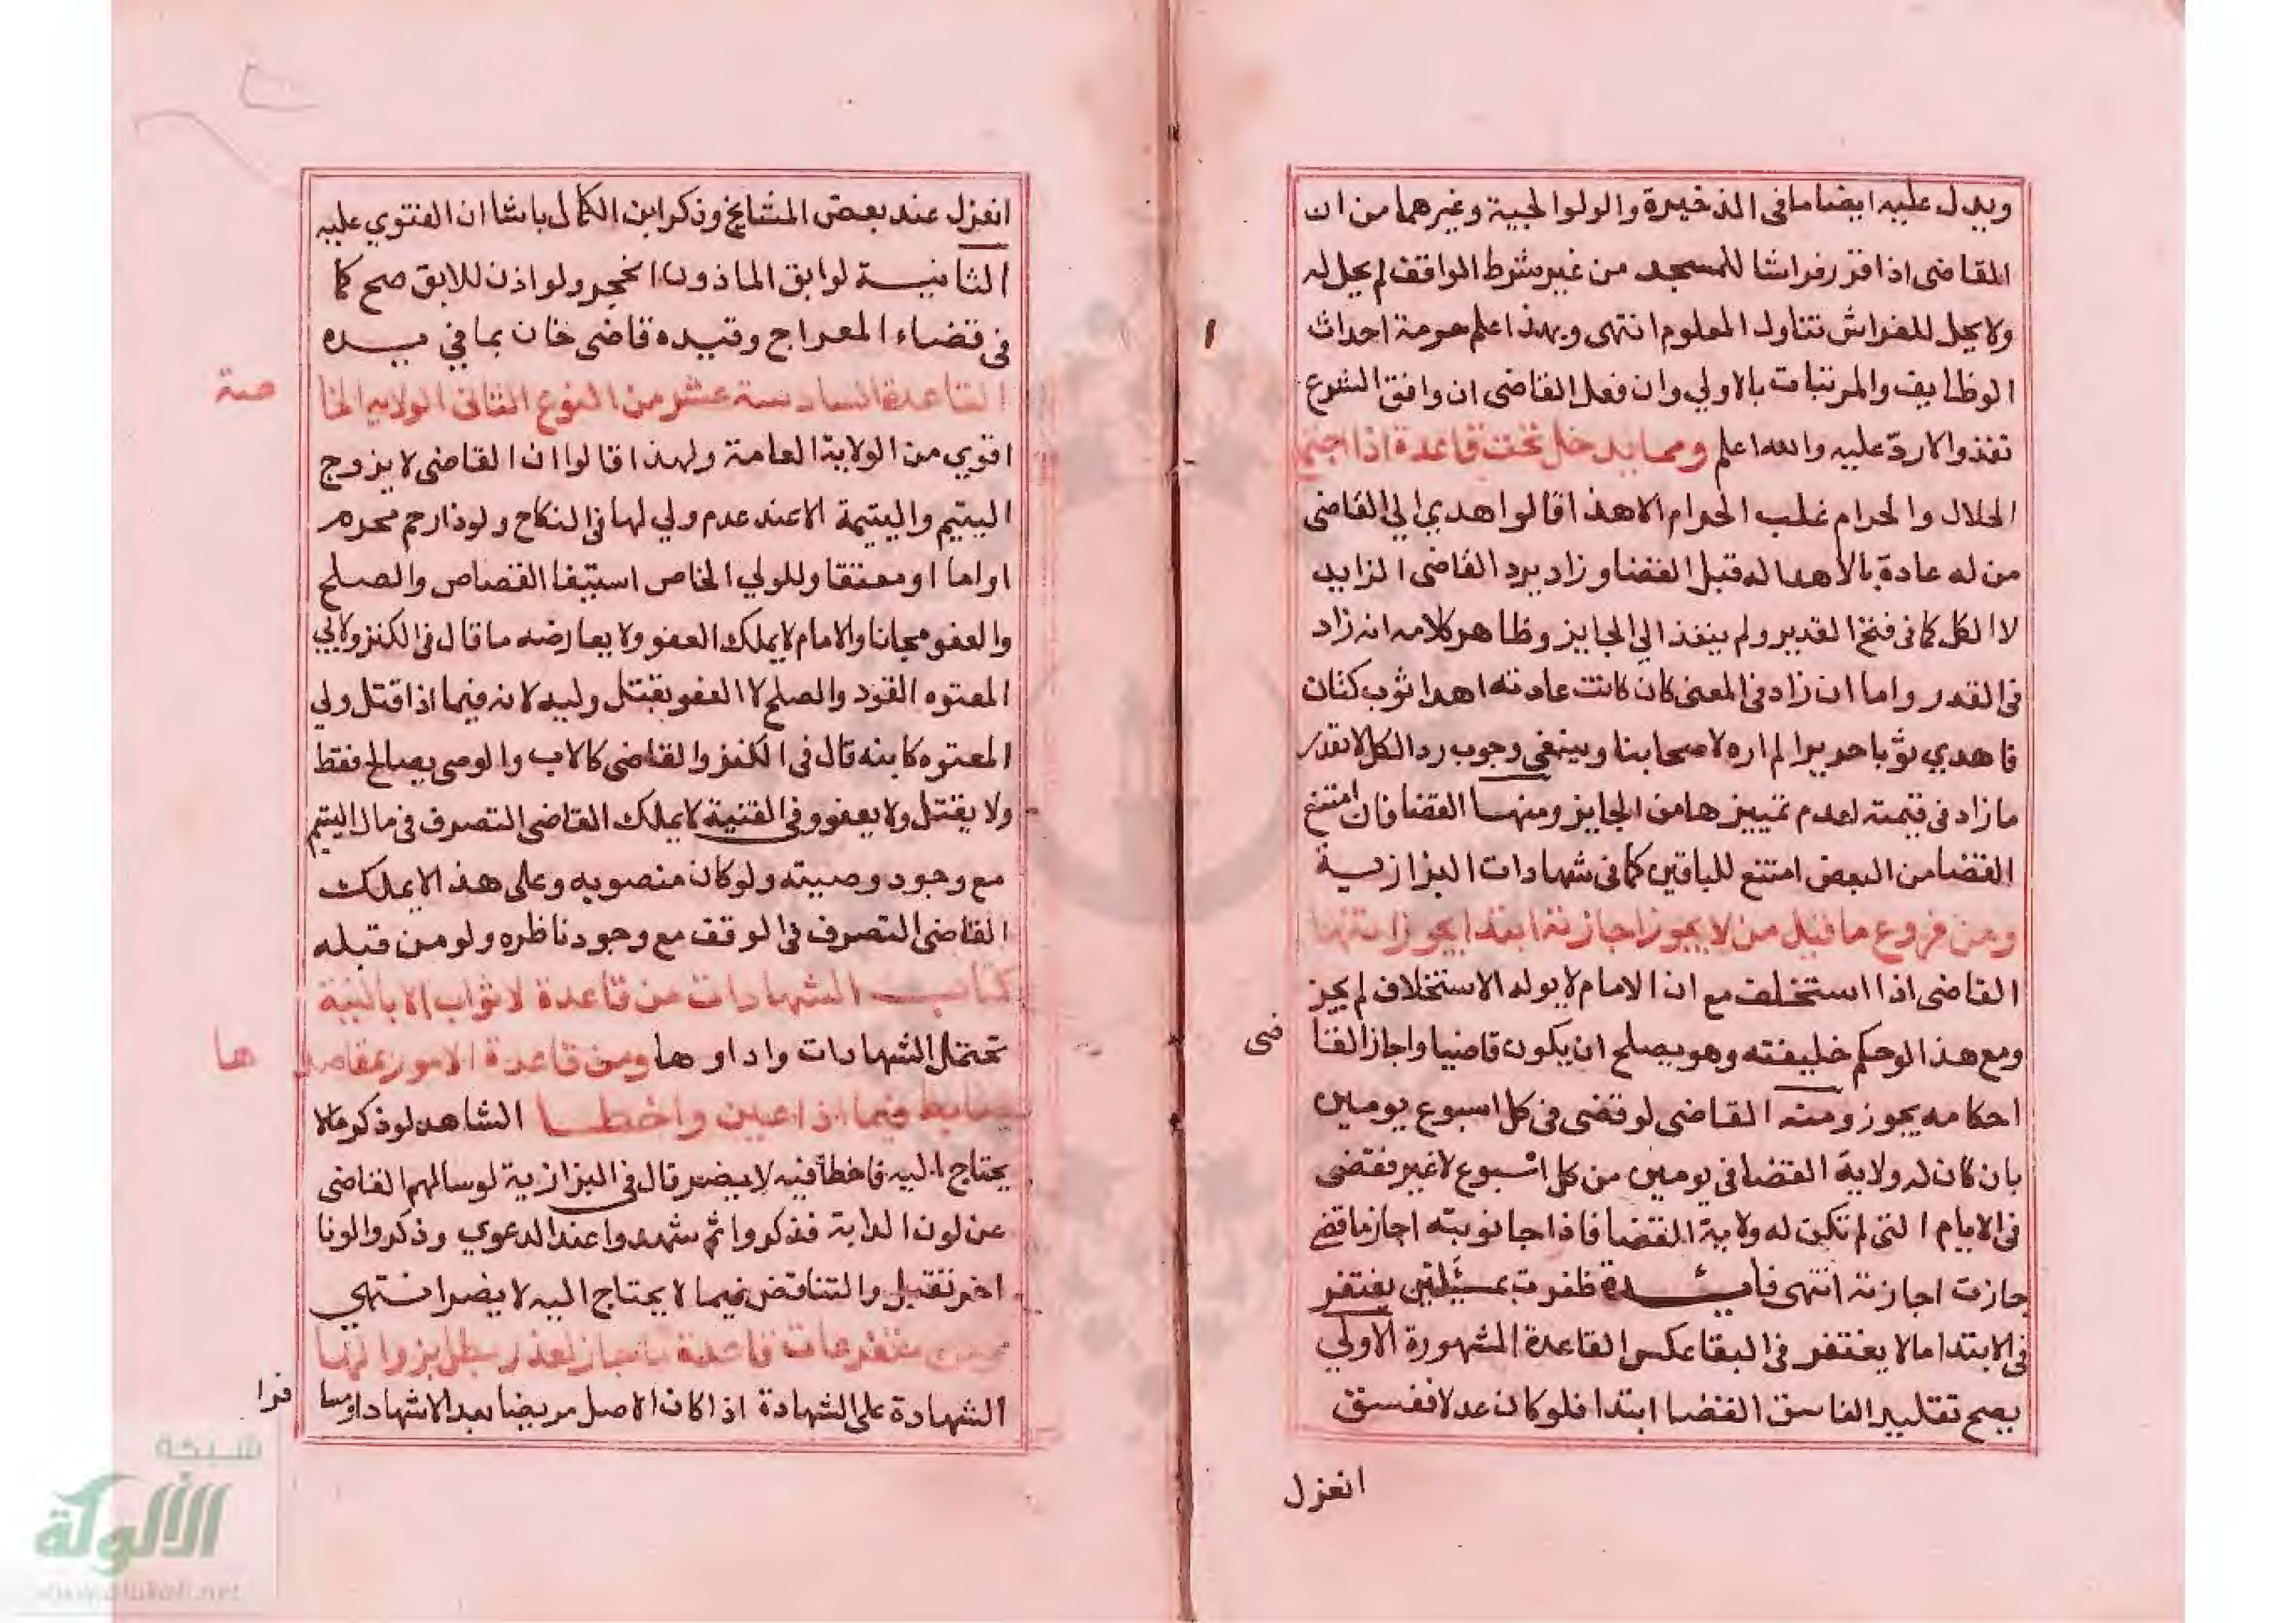 ويدل عليه ايضا ما فى الذخيرة والولوالجية وغيرهما من ان
القاضى اذا قرر فراشا للمسجد من غير شرط الواقف لم يحل له
ولا يحل للفراش تناول المعلوم انتهى وبهذا علم حرمة احداث
الوظايف والمرتبات بالاولي وان فعل القاضى ان وافق الشرع
نفذ والا رد عليه والله اعلم ومما يدخل تحت قاعدة اذا اجتمع
الحلال والحرام غلب الحرام الا هذا قالوا هدي الي القاضى
من له عادة بالاهدا له قبل القضا وزاد يرد القاضى الزايد
لا الكل كما فى فتح القدير ولم ينفذ الي الجايز وظاهر كلامه انه زاد
فى القدر واما ان زاد فى المعنى كان كانت عادته اهدا ثوب كتان
فاهدي ثوبا حريرا لم اره لاصحابنا وينبغى وجوب رد الكل لا بقدر
ما زاد فى قيمته لعدم تمييزها من الجايز ومنها القضا فان امتنع
القضا من البعض امتنع للباقين كما فى شهادات البزازية
ومن فروع ما قيل من لا يجوز اجازته ابتدا يجوز انتها
القاضى اذا استخلف مع ان الامام لا يوله الاستخلاف لم يجز
ومع هذا لو حكم خليفته وهو يصلح ان يكون قاضيا واجاز القا
ضى
احكامه يجوز ومنه القاضى لو قضى فى كل اسبوع يومين
بان كان له ولاية القضا فى يومين من كل اسبوع لا غير فقضى
فى الايام التى لم تكن له ولاية القضا فاذا جا نوبته اجاز ما قضى
جازت اجازته انتهى فايدة ظفرت بمسئلتين يغتفر
فى الابتدا ما لا يغتفر فى البقا عكس القاعدة المشهورة الاولي
يصح تقليد الفاسق القضا ابتدا فلو كان عدلا ففسق
انعزل
انعزل عند بعض المشايخ وذكر ابن الكمال باشا ان الفتوي عليه
الثانية لو ابق الماذون انحجر ولو اذن للابق صح كما
فى قضاء المعراج وقيده قاضى خان بما فى يده
القاعدة السادسة عشر من النوع الثانى الولاية الخا
صة
اقوي من الولاية العامة ولهذا قالوا ان القاضى لا يزوج
اليتيم واليتيمة الا عند عدم ولي لها فى النكاح ولو ذا رحم محرم
او اما او معتقا وللولي الخاص استيفا القصاص والصلح
والعفو مجانا والامام لا يملك العفو ولا يعارضه ما قال فى الكنز ولابي
المعتوه القود والصلح لا العفو بقتل وليه لانه فيما اذا قتل ولي
المعتوه كابنه قال فى الكنز والقاضى كالاب والوصى يصالح فقط
ولا يقتل ولا يعفو وفى القنية لا يملك القاضى التصرف فى مال اليتيم
مع وجود وصيته ولو كان منصوبه وعلى هذا لا يملك
القاضى التصرف فى الوقف مع وجود ناظره ولو من قبله
كتاب الشهادات من قاعدة لا ثواب الا بالنية
تحتمل الشهادات واداوها ومن قاعدة الامور بمقاصد
ها
ضابط فيما اذا عين واخطا الشاهد لو ذكر ما لا
يحتاج اليه فاخطأ فيه لا يضر قال فى البزازية لو سالهم القاضى
عن لون الدابة فذكروا ثم شهدوا عند الدعوي وذكروا لونا
اخر تقبل والتناقض فيما لا يحتاج اليه لا يضر انتهى
متفرعات قاعدة ما جاز لعذر بطل بزواله
الشهادة على الشهادة اذا كان الاصل مريضا بعد الاشهاد او